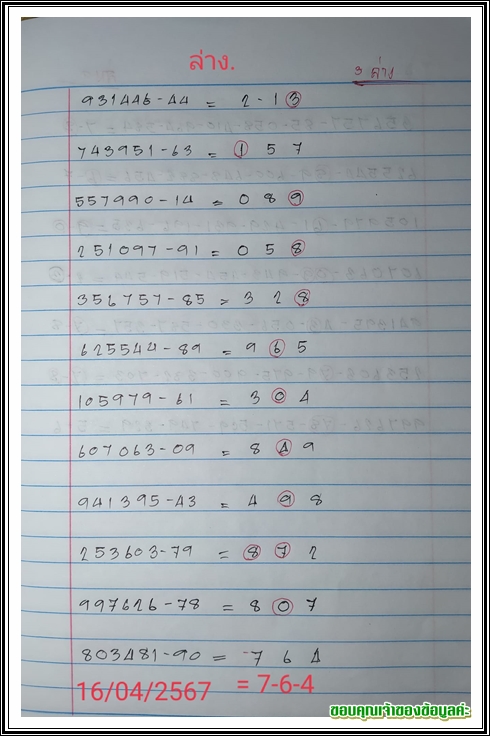 ล่าง.
3 ล่าง
931446-44 = 2-1 3
743951-63 = 1 5 7
557990-14 = 0 8 9
251097-91 = 0 5 8
356757-85 = 3 2 8
625544-89 = 9 6 5
105979-61 = 3 0 4
607063-09 = 8 4 9
941395-43 = 4 9 8
253603-79 = 8 7 2
997626-78 = 8 0 7
803481-90 = 7 6 4
16/04/2567 = 7-6-4
ขอบคุณเจ้าของข้อมูลค่ะ